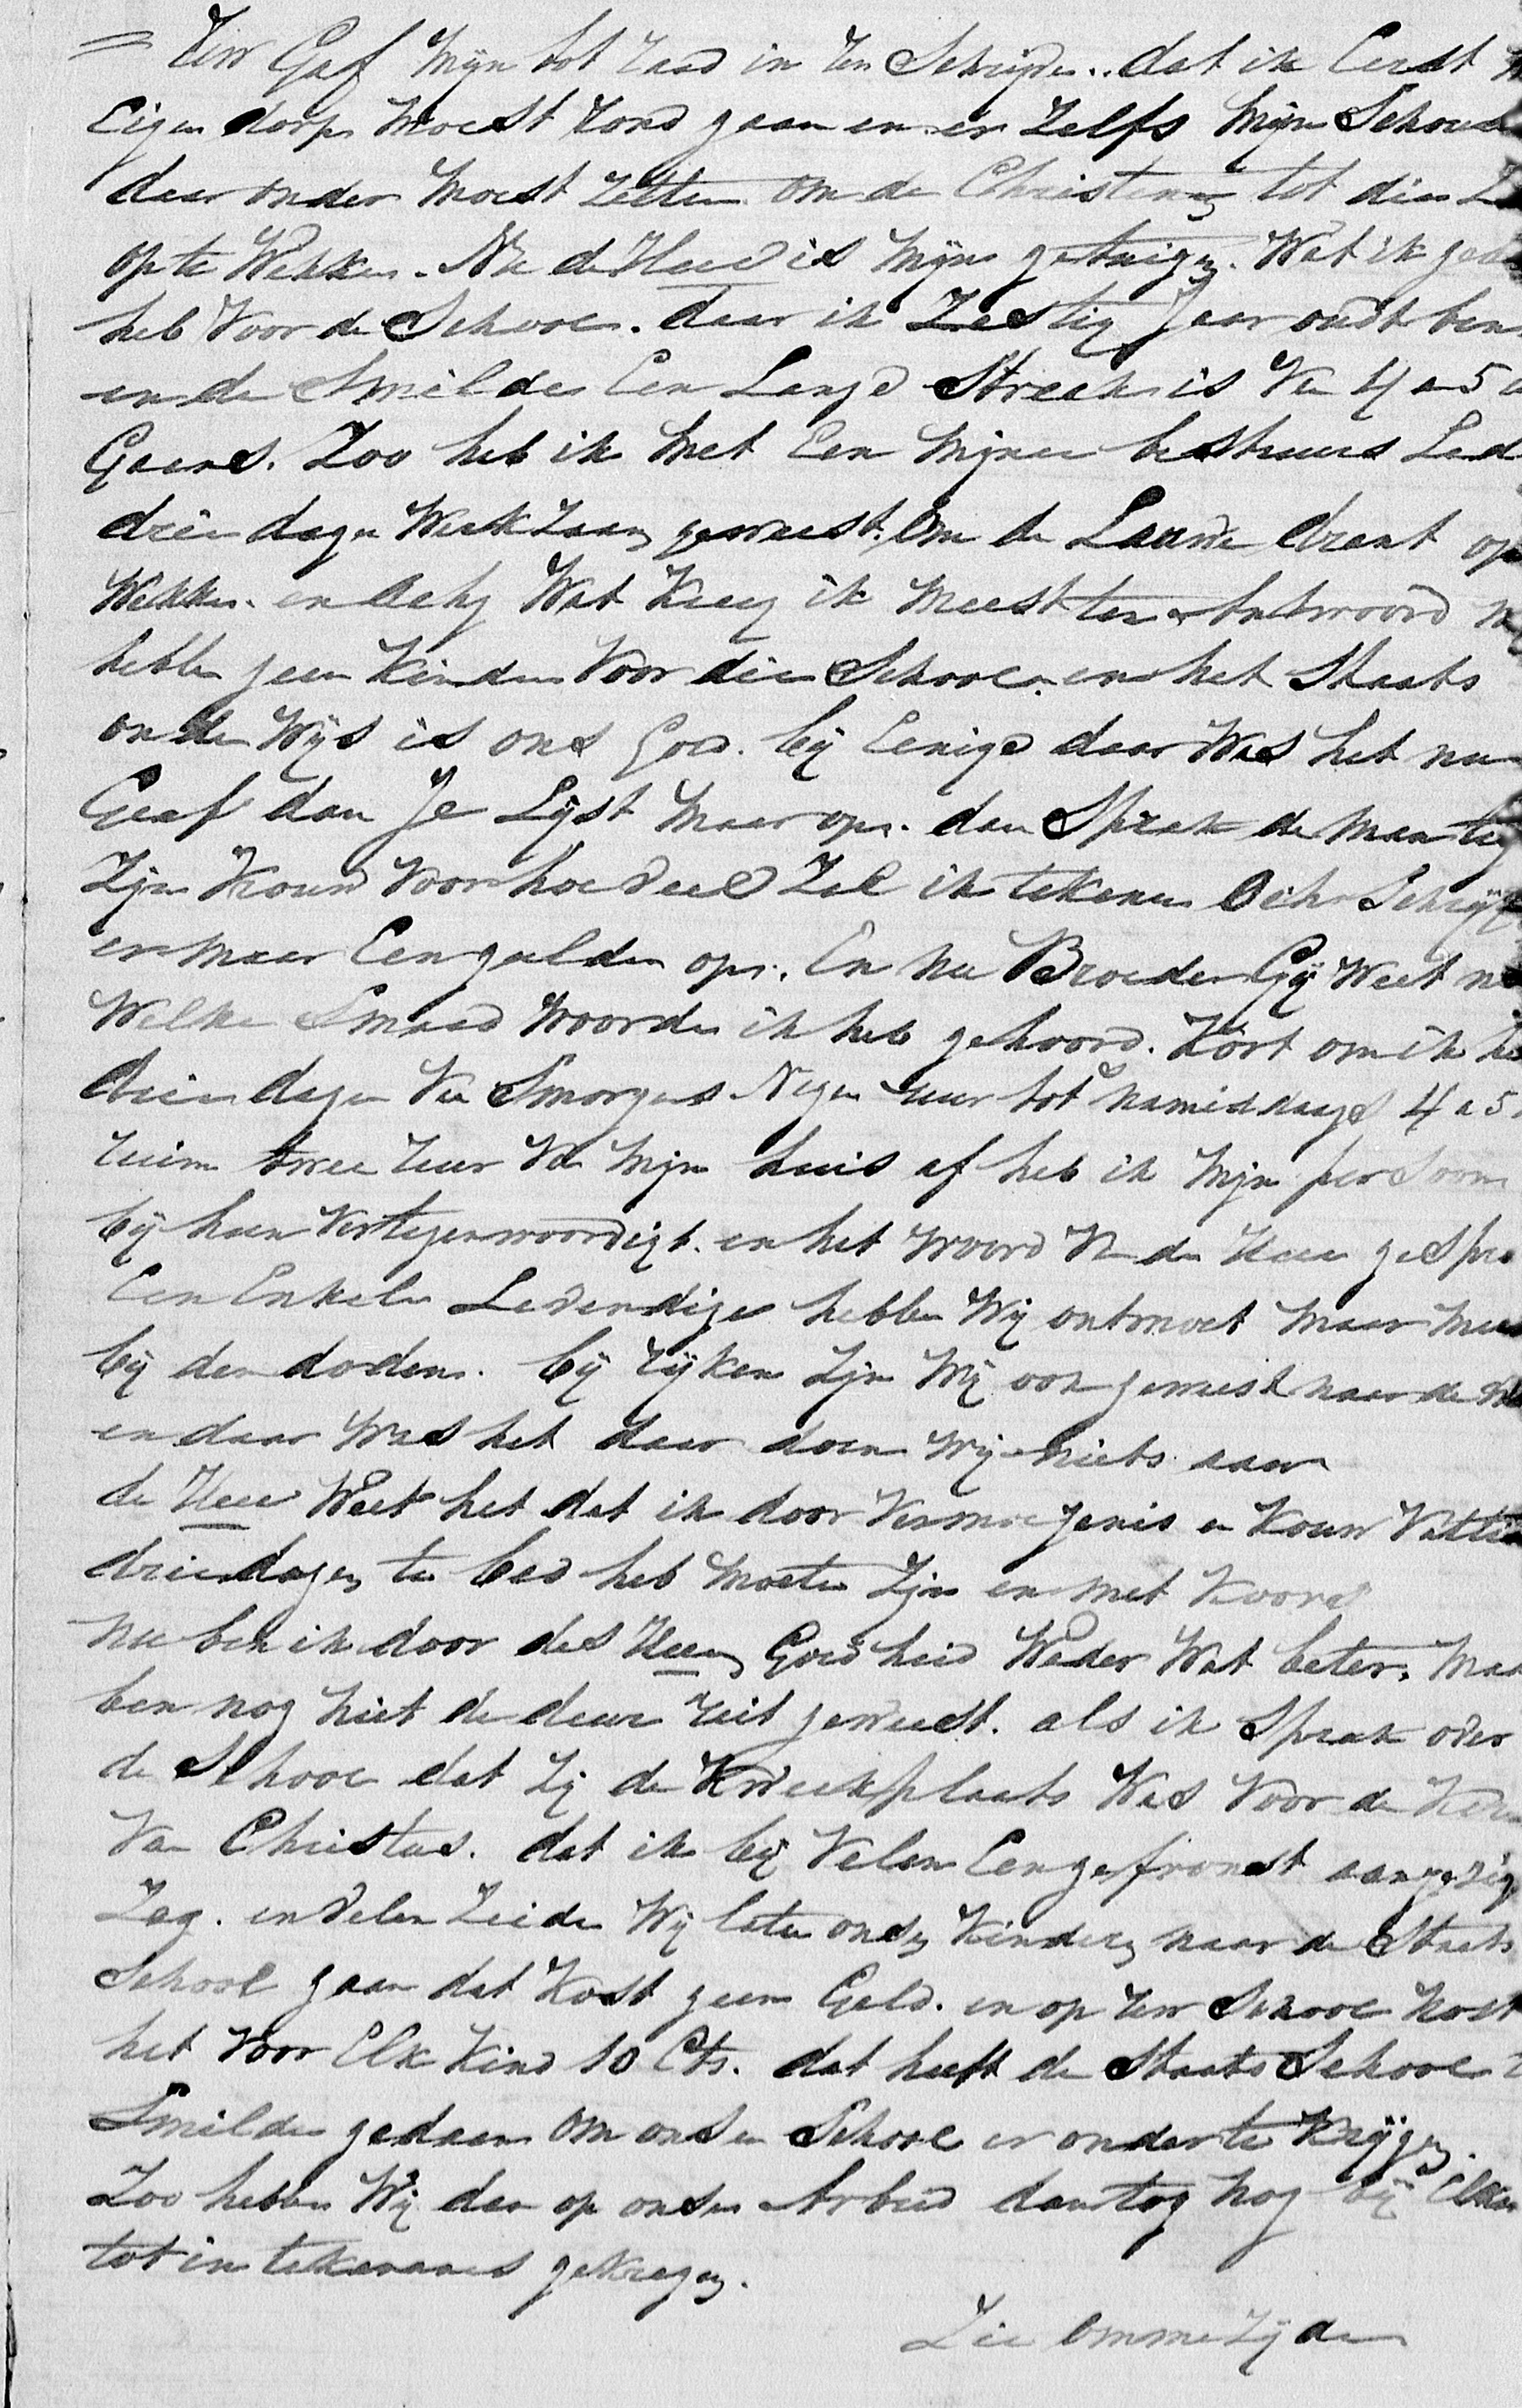 Uw Gaf Mijn tot Raad in Uw Schrijven.. dat ik Eerst
Eigen dorp Moest rond gaan en er Zelfs Mijn Schouder
daar onder Moest Zetten om de Christenen tot die
op te Wekken. Nu de Heere is Mijn getuigen. Wat ik ged
heb Voor de School. daar ik Zestig Jaar oudt ben
en de Smilde Een Lange Streek is Van 4 a 5
Gaans. Zoo heb ik met Een Mijner bestuurs Led
drie dagen Werkzaam geweest. Om de Lauwe drent op
Wekken. en Achg Wat Kreeg ik Meest ten Antwoord
hebben geen Kinders Voor die School. en het Staats
onder Wijs is ons Goed. bij Eenige daar Was het nu
Geef dan Je Lijst Maar op. dan Sprak de Man teg
Zijn Vrouw Voor hoe Veel Zal ik tekenen Och Schrijf
er maar Een gulden op. En nu Broeder Gij Weet
Welke Smaad Woorden ik heb gehoord. Kort om ik he
drie dagen Van Smorgens Negen uur tot namiddags 4 a 5
Ruim twee uur Van Mijn huis af heb ik Mijn persoon
bij heen Vertegenwoordigt. en het Woord Van den Heere gespro
Een Enkele Levendige hebben Wij ontmoet Maar Mees
bij den doden. bij Rijken Zijn Wij ook geweest naar de
en daar Was het daar doen Wij niets aan
de Heere Weet het dat ik door Vermoejenis en Kouw Vatte
drie dagen te bed heb moeten Zijn en met Koors
Nu ben ik door des Heeren Goedheid Weder Wat beter. Maa
ben nog niet de deur uit geweest. als ik Sprak over
de School dat Zij de Kweekplaats Was Voor de
Van Christus. dat ik bij Velen Een gefronst aangezig
Zag. en Velen Zeiden Wij laten onsen Kinderen naar de Staats
School gaan dat Kost geen Geld. en op Uw School Kost
het Voor Elk Kind 10 Cts. dat heeft de Staats School
Smilde gedaan om onsen School er onder te Krijgen.
Zoo hebben Wij dan op onsen Arbeid dan tog nog bij Elka
tot in tekenaars gekregen.
Zie Ommezijde